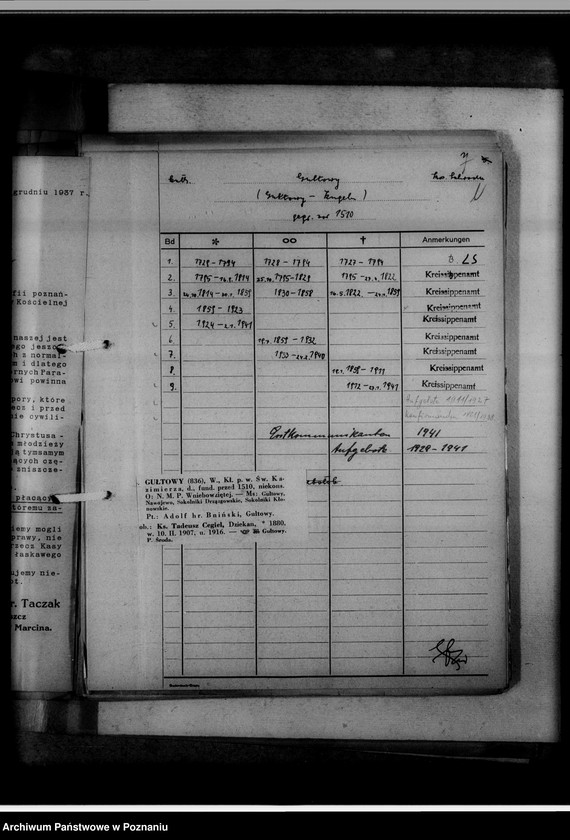 grudniu 1937 r.
fii poznań-
Kościelnej
naszej jest
ego jeszc
h z normal-
m i dlatego
rnych Para-
wi powinna
pory, które
ecz i przed
nie cywili-
Chrystusa -
młodzieży
ą tymsamym
jących czę-
zniszcze-
płacących
tóremu za-
iemy mogli
prawy, nie
rzecz Kasy
łaskawego
ujemy nie-
ot.
r. Taczak
szcz
Marcina.
7
Gułtowy
(Gułtowy - Kugeln)
gegr. vor 1510
Bd * ∞ † Anmerkungen
1. 1728-1794 1728-1794 1727-1794 LS
2. 1795-1814 1795-1829 1795-1822 Kreissippenamt
3. 1814-1859 1830-1858 1822-1859 Kreissippenamt
4. 1859-1923 Kreissippenamt
5. 1924-1941 Kreissippenamt
6. 1859-1932 Kreissippenamt
7. 1933-1940 Kreissippenamt
8. Kreissippenamt
9. 1912-1941 Kreissippenamt
Aufgebote 1911/1927
Erstkommunikanten 1941
Aufgebote 1929-1941
GUŁTOWY (836), W., Kł. p. w. Św. Ka-
zimierza, d., fund. przed 1510, niekons.
O: N. M. P. Wniebowziętej. — Ms: Gułtowy,
Nawojewo, Sokolniki Drzązgowskie, Sokolniki Klo-
nowskie.
Pt.: Adolf hr. Bniński, Gułtowy.
ob.: Ks. Tadeusz Cegiel, Dziekan, * 1880,
w. 10. II. 1907, u. 1916. — Gułtowy.
P. Środa.
Archiwum Państwowe w Poznaniu